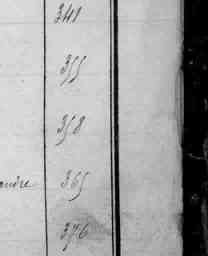 341
355
358
andre 365
376